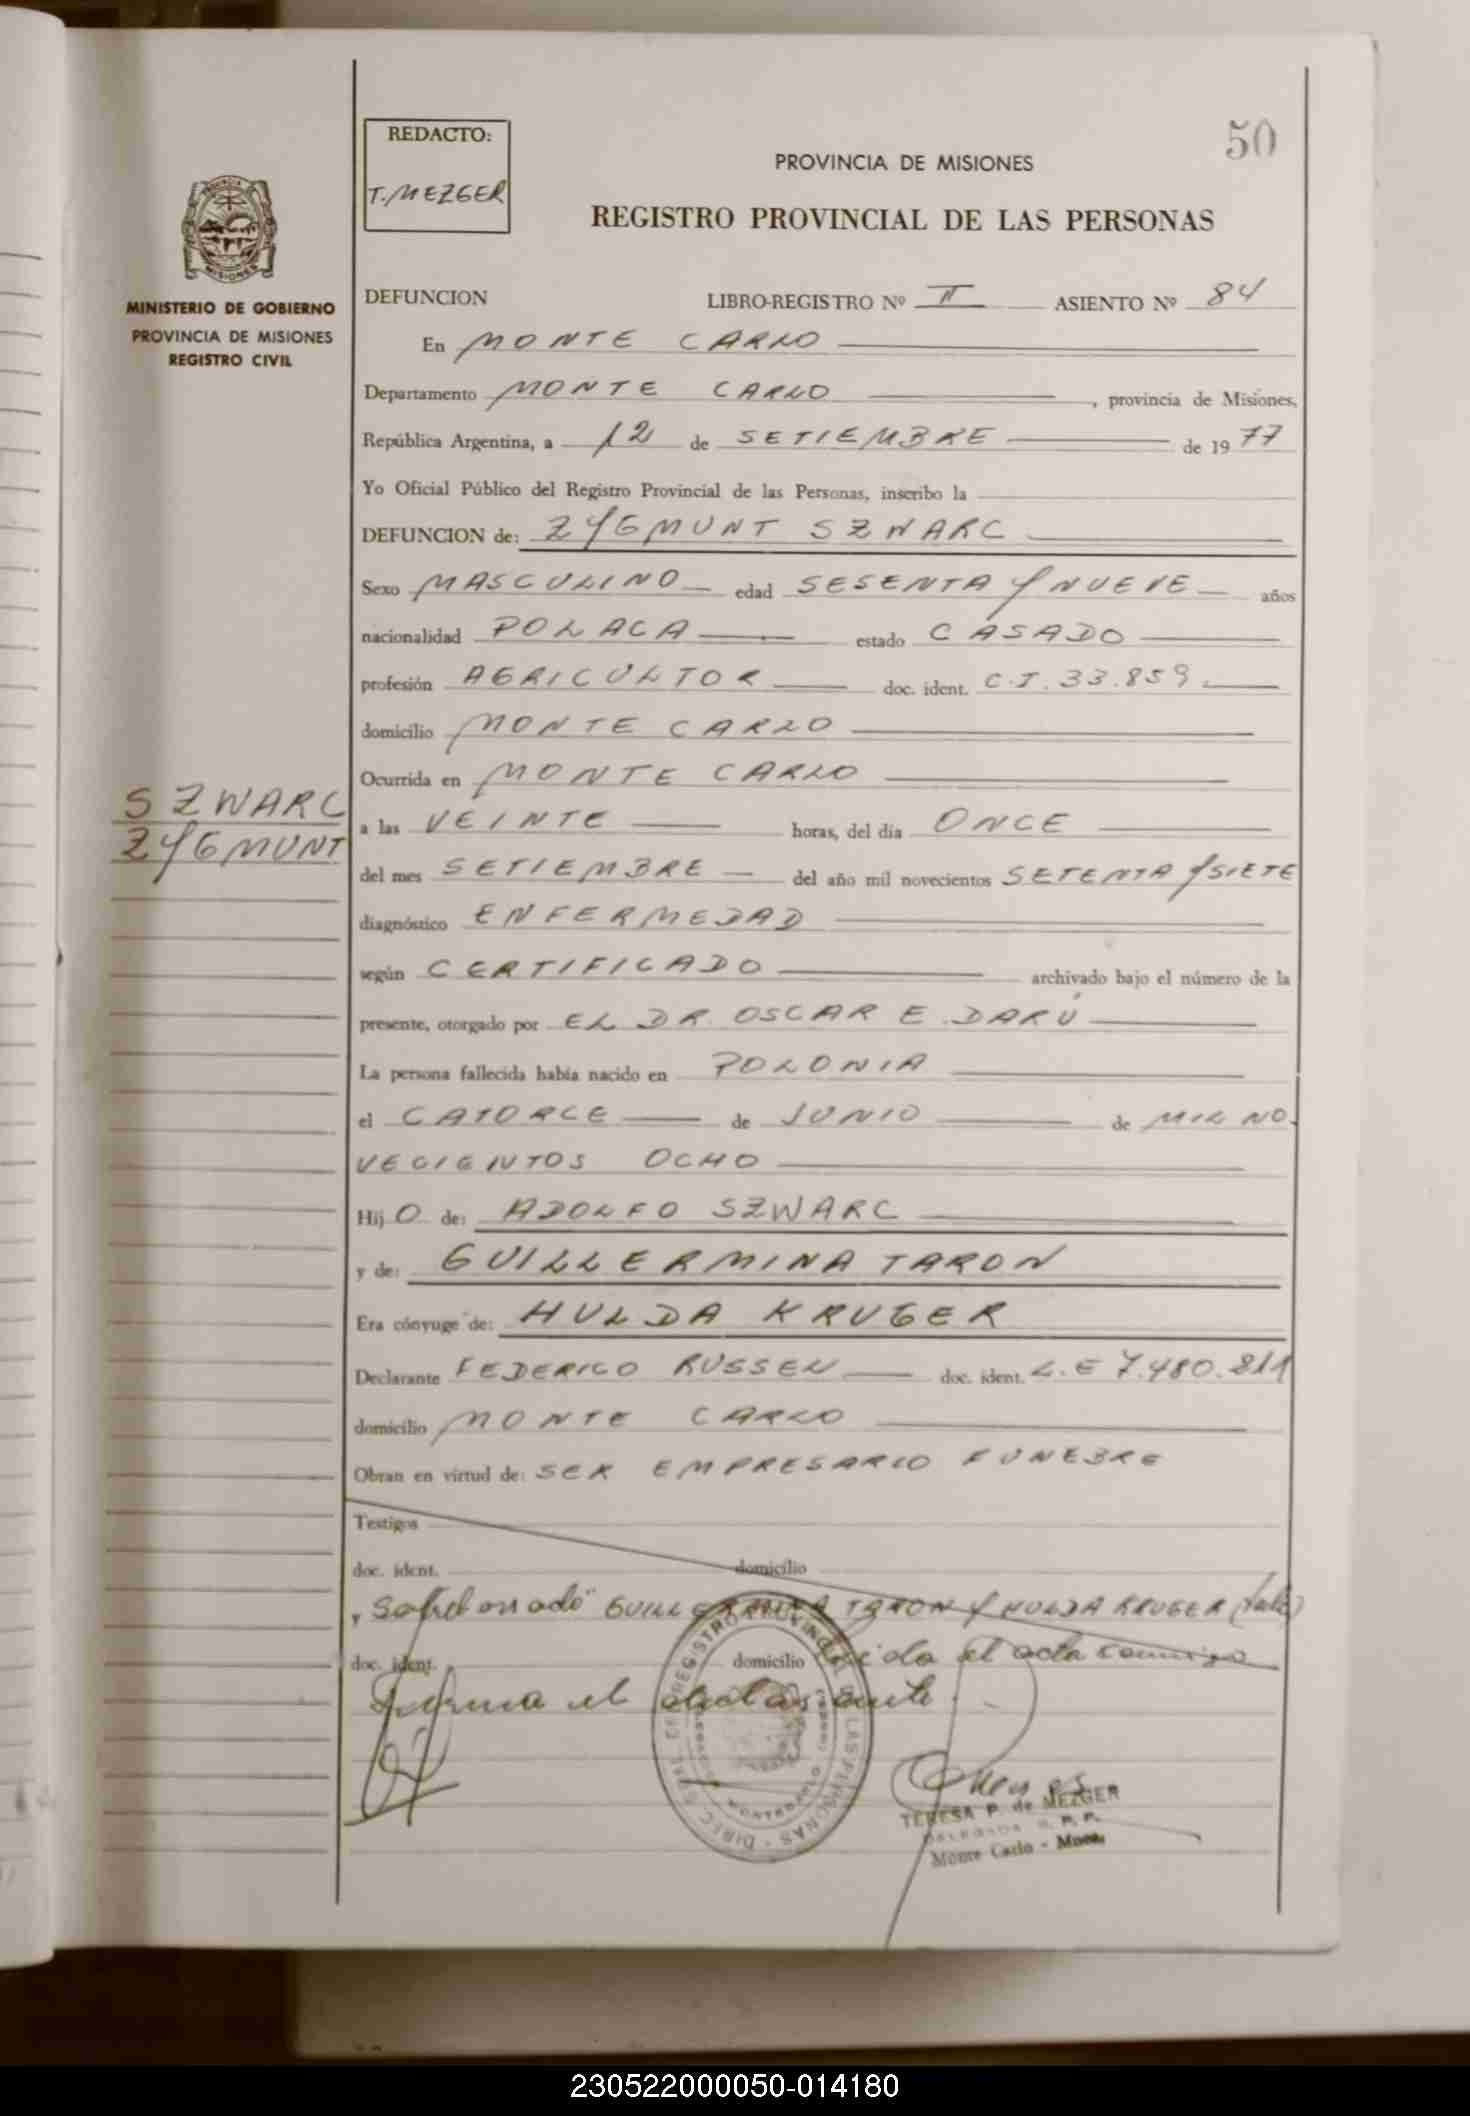 REDACTO:
T. MEZGER
50
PROVINCIA DE MISIONES
REGISTRO PROVINCIAL DE LAS PERSONAS
MINISTERIO DE GOBIERNO
PROVINCIA DE MISIONES
REGISTRO CIVIL
DEFUNCION LIBRO-REGISTRO Nº II ASIENTO Nº 84
En MONTE CARLO
Departamento MONTE CARLO, provincia de Misiones,
República Argentina, a 12 de SETIEMBRE de 1977
Yo Oficial Público del Registro Provincial de las Personas, inscribo la
DEFUNCION de: ZYGMUNT SZWARC
Sexo MASCULINO edad SESENTA Y NUEVE años
nacionalidad POLACA estado CASADO
profesión AGRICULTOR doc. ident. C.I. 33.859
domicilio MONTE CARLO
Ocurrida en MONTE CARLO
SZWARC
ZYGMUNT
a las VEINTE horas, del día ONCE
del mes SETIEMBRE del año mil novecientos SETENTA Y SIETE
diagnóstico ENFERMEDAD
según CERTIFICADO archivado bajo el número de la
presente, otorgado por EL DR. OSCAR E. DARÚ
La persona fallecida había nacido en POLONIA
el CATORCE de JUNIO de MIL NO-
VECIENTOS OCHO
Hij O de: ADOLFO SZWARC
y de: GUILLERMINA TARON
Era cónyuge de: HULDA KRUGER
Declarante FEDERICO RUSSEN doc. ident. L.E 7.480.211
domicilio MONTE CARLO
Obran en virtud de: SER EMPRESARIO FUNEBRE
Testigos
doc. ident. domicilio
y Sobrebonado GUILLERMINA TARON Y HULDA KRUGER (vale)
doc. ident. domicilio Leida el acta conmigo
firma el declarante
DIREC. GRAL. DEL REGISTRO PROVINCIAL DE LAS PERSONAS
MONTECARLO
TERESA P. de MEZGER
DELEGADA R. P. P.
Monte Carlo - Mnes.
230522000050-014180